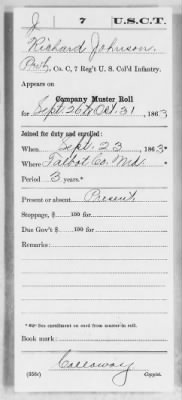 J | 7 | U.S.C.T.
Richard Johnson.
Pvt, Co. C, 7 Reg't U. S. Col'd Infantry.
Appears on
Company Muster Roll
for Sept. 26 to Oct. 31, 1863
Joined for duty and enrolled:
When Sept. 23, 1863*
Where Talbot Co. Md.
Period 3 years.*
Present or absent Present
Stoppage, $ 100 for
Due Gov't $ 100 for
Remarks:
*See enrollment on card from muster-in roll.
Book mark:
Calloway
(358c) Copyist.